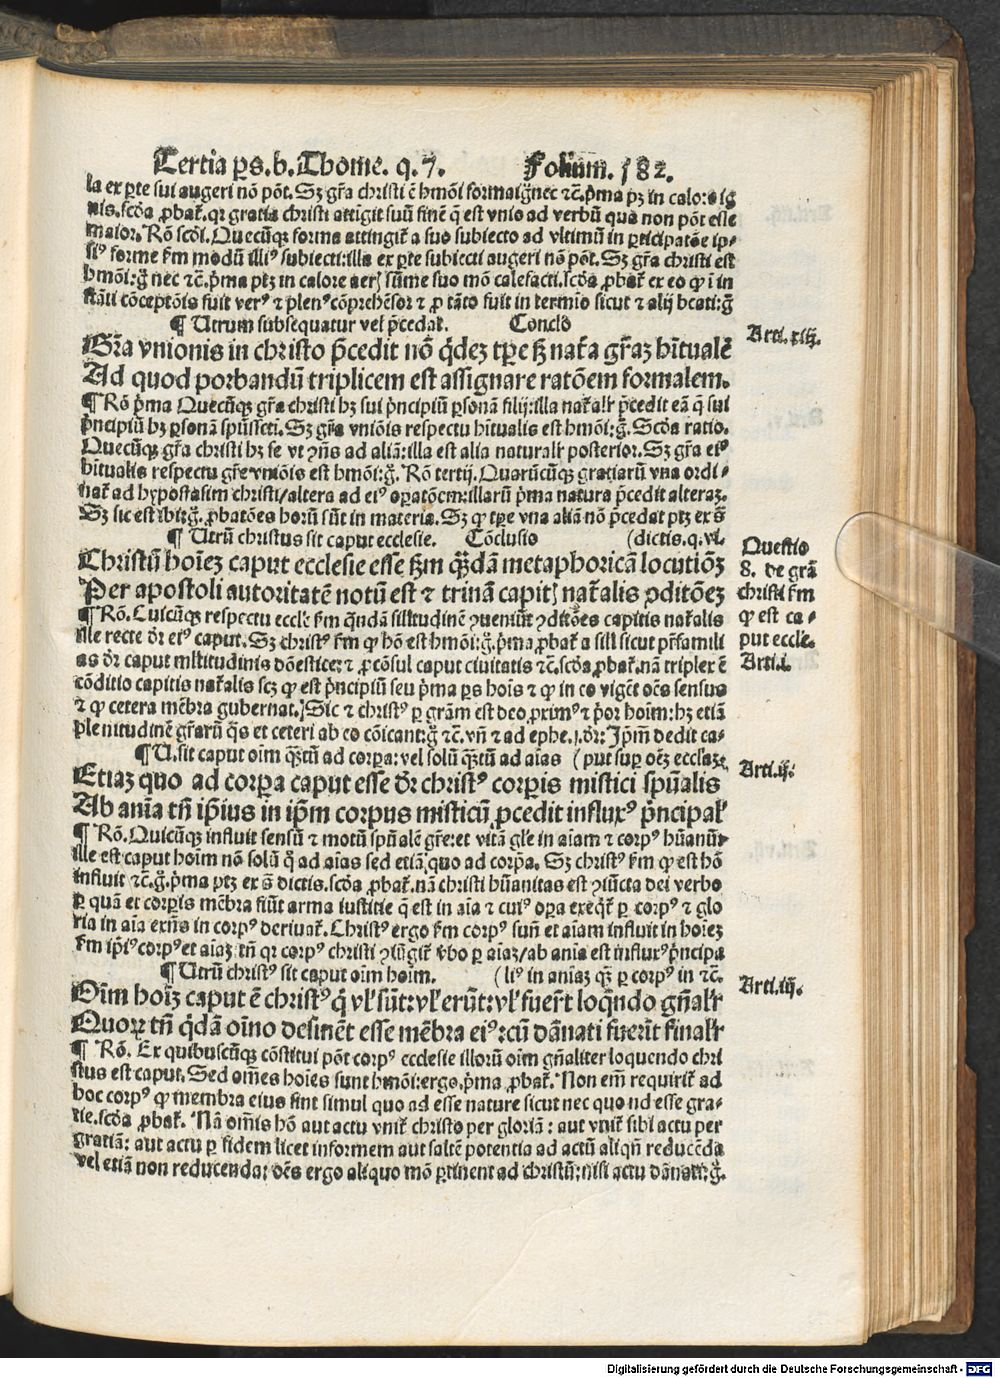 Tertia ps. b. Thome. q. 7. Folium. 182.
la ex pte sui augeri nõ põt. Sꝫ gr̃a christi ē hmõi forma igr̃ nec ⁊c. p̃ma pꝫ in calore ig
nis. scða ꝓbat̃. qꝛ gratia christi attigit suũ finẽ q̃ est vnio ad verbũ qua non põt esse
maior. Rõ scði. Quecũqꝫ forma attingit̃ a suo subiecto ad vltimũ in ꝑticipatõe ip⸗
siꝰ forme fm modũ illiꝰ subiecti: illa ex ꝑte subiecti augeri nõ põt. Sꝫ gr̃a christi est
hmõi: g̃ nec ⁊c. p̃ma ptꝫ in calore aeris sũme suo mõ calefacti. scða ꝓbat̃ ex eo ꝙ ĩ in
stãti cõceptõis fuit verꝰ ⁊ plenꝰ cõprehẽsor ⁊ ꝓ tãto fuit in termĩo sicut ⁊ alij bcati: g̃
¶ Utrum subsequatur vel p̃cedat. Conclo
Gr̃a vnionis in christo p̃cedit nõ q̃dez tꝑe sꝫ nat̃a gr̃aꝫ hĩtualẽ
Ad quod porbandũ triplicem est assignare ratõem formalem.
¶ Rõ p̃ma Quecũqꝫ gr̃a christi hꝫ sui p̃ncipiũ ꝑsonã filij: illa nat̃alr̃ p̃cedit eã q̃ sui
p̃ncipiũ hꝫ ꝑsonã spũssct̃i. Sꝫ gr̃a vniõis respectu hĩtualis est hmõi: g̃. Scða ratio.
Quecũqꝫ gr̃a christi hꝫ se vt ꝯñs ad aliã: illa est alia naturalr̃ posterior. Sꝫ gr̃a eiꝰ
hĩtualis respectu gr̃e vniõis est hmõi: g̃. Rõ tertij. Quarũcũqꝫ gratiarũ vna ordi⸗
nat̃ ad hypostasim christi / altera ad eiꝰ oꝑatõem: illarũ p̃ma natura p̃cedit alteraꝫ.
Sꝫ sic est ibi: g̃. ꝓbatões horũ sũt in materia. Sꝫ ꝙ tꝑe vna aliã nõ p̃cedat ptꝫ ex s̃
¶ Utrũ christus sit caput ecclesie. Cõclusio (dictis. q. vi.
Christũ hoĩeꝫ caput ecclesie esse fm q̃dã metaphoricã locutiõꝫ
Per apostoli autoritatẽ notũ est ⁊ trinã capitis nat̃alis ꝯditõeꝫ
¶ Rõ. Cuicũqꝫ respectu eccl̃e fm q̃ndã sil̃itudinẽ ꝯueniũt ꝯditões capitis nat̃alis
ille recte dr̃ eiꝰ caput. Sꝫ christꝰ fm ꝙ hõ est hmõi: g̃. p̃ma ꝓbat̃ a sil̃i sicut pr̃familí
as dr̃ caput ml̃titudinis dõestice: ⁊ ꝓcõsul caput ciuitatis ⁊c. scða ꝓbat̃. nã triplex ẽ
cõditio capitis nat̃alis scꝫ ꝙ est p̃ncipiũ seu p̃ma pꝛs hoĩs ⁊ ꝙ in eo vigẽt oẽs sensus
⁊ ꝙ cetera mẽbra gubernat. Sic ⁊ christꝰ ꝑ gr̃am est deo ꝓximꝰ ⁊ p̃or hoĩm: hꝫ etiã
plenitudinẽ gr̃arũ q̃s et ceteri ab eo cõicant: g̃ ⁊c. vñ ⁊ ad ephe. j. dr̃: Ip̃m dedit ca⸗
¶ U. sit caput oĩm q̃ꝫtũ ad corpa: vel solũ q̃ꝫtũ ad aĩas (put suꝑ oẽꝫ eccl̃aꝫ.
Etiaꝫ quo ad corꝑa caput esse dr̃ christꝰ corꝑis mistici spũalis
Ab anĩa tñ ip̃ius in ip̃m corpus misticũ ꝓcedit influxꝰ p̃ncipalr̃
¶ Rõ. Quicũqꝫ influit sensũ ⁊ motũ spũalẽ gr̃e: et vitã gl̃e in aĩam ⁊ corpꝰ hũanũ:
ille est caput hoĩm nõ solũ q̃ ad aĩas sed etiã quo ad corꝑa. Sꝫ christꝰ fm ꝙ est hõ
influit ⁊c. g̃. p̃ma ptꝫ ex s̃ dictis. scða ꝓbat̃. nã christi hũanitas est ꝯiũcta dei verbo
ꝑ quã et corꝑis mẽbra fiũt arma iustitie q̃ est in aĩa ⁊ cuiꝰ oꝑa exeq̃t̃ ꝑ corpꝰ ⁊ glo
ria in aĩa exñs in corpꝰ deriuat̃. Christꝰ ergo fm corpꝰ suũ et aĩam influit in hoĩeꝫ
fm ip̃iꝰ corpꝰ et aĩaꝫ tñ qꝛ corpꝰ christi ꝯiũgit̃ vbo ꝑ aĩaꝫ / ab anĩa est influxꝰ p̃ncipa
¶ Utrũ christꝰ sit caput oĩm hoĩm. (liꝰ in anĩaꝫ q̃ꝫ ꝑ corpꝰ in ⁊c.
Oĩm hoĩꝫ caput ẽ christꝰ q̃ vl̃ sũt: vl̃ erũt: vl̃ fuer̃t loq̃ndo gñalr̃
Quoꝝ tñ q̃dã oĩno desinẽt esse mẽbra eiꝰ: cũ dãnati fuerĩt finalr̃
¶ Rõ. Ex quibuscũqꝫ cõstitui põt corpꝰ ecclesie illorũ oĩm gñaliter loquendo chri
stus est caput. Sed om̃es hoĩes sunt hmõi: ergo. p̃ma ꝓbat̃. Non em̃ requirit̃ ad
hoc corpꝰ ꝙ membra eius sint simul quo ad esse nature sicut nec quo ad esse gra⸗
tie. scða ꝓbat̃. Nã om̃is hõ aut actu vnit̃ christo per gloriã: aut vnit̃ sibi actu per
gratiã: aut actu ꝑ fidem licet informem aut saltẽ potentia ad actũ aliqñ reducẽda
vel etiã non reducenda: oẽs ergo aliquo mõ ꝑtinent ad christũ: nisi actu dãnati: g̃.
Arti. xiij.
Questio
8. de gr̃a
christi fm
ꝙ est ca⸗
put eccl̃e.
Arti. i.
Arti. ij.
Arti. iij.
Digitalisierung gefördert durch die Deutsche Forschungsgemeinschaft - DFG